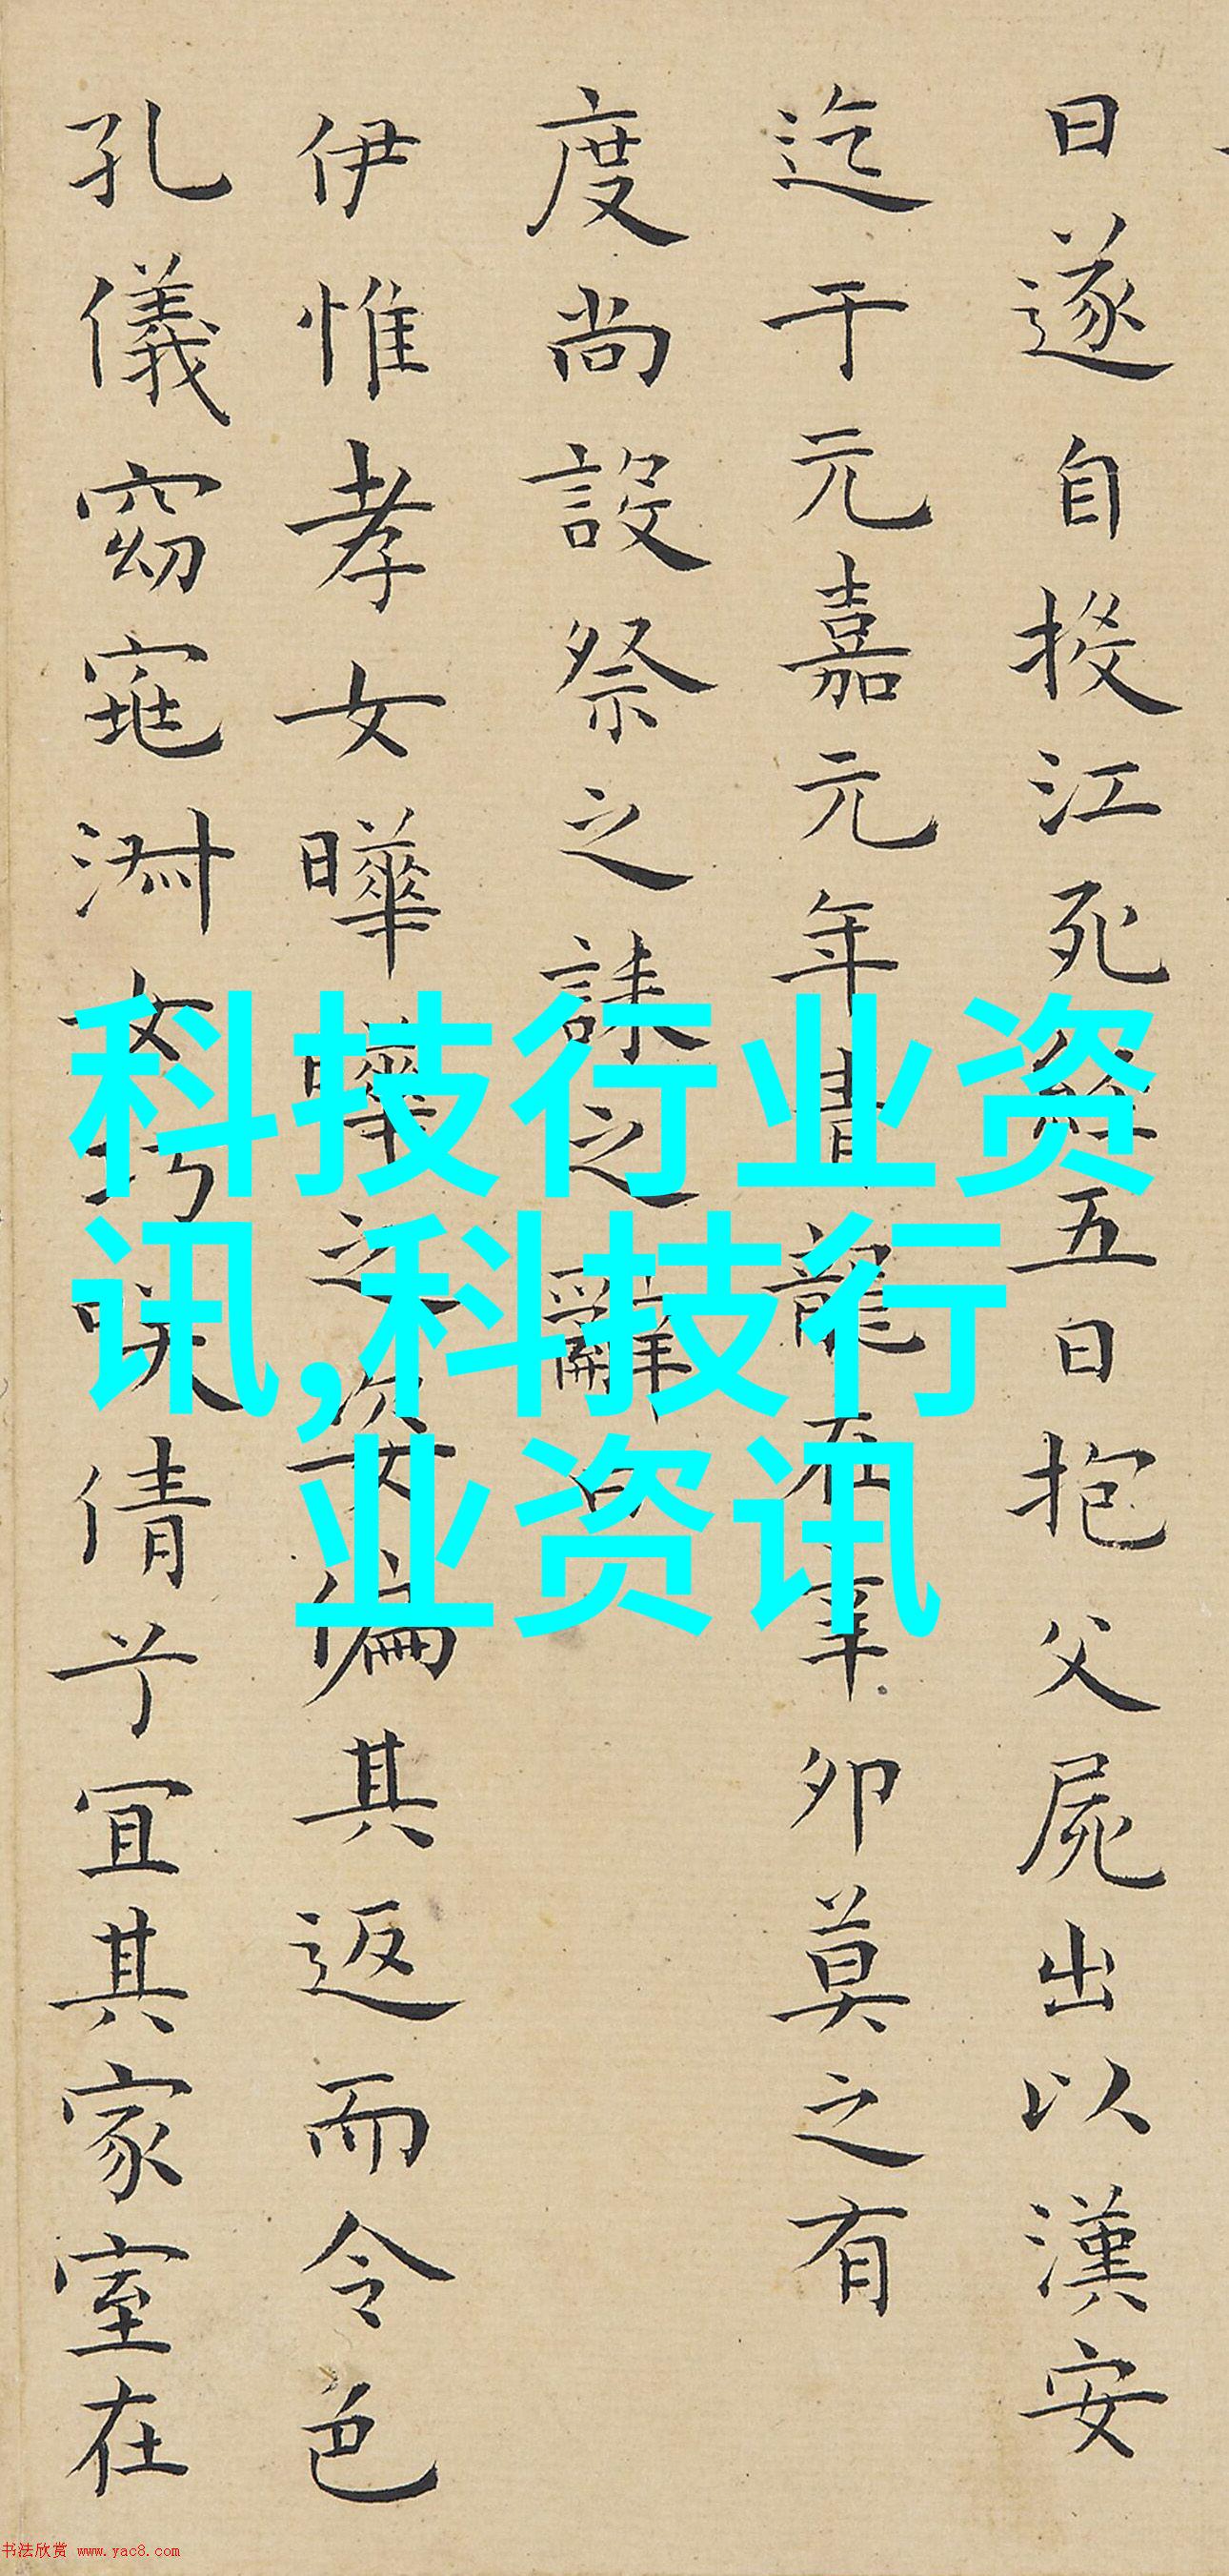 日遂自投江死經五日抱父屍出以漢安
迄于元嘉元年青龍在辛卯莫之有
度尚設祭之誄之辭曰
伊惟孝女曄曄之姿偏其返而令色
孔儀窈窕淑女巧咲倩兮宜其家室在
科技行业资
讯,科技行
业资讯
书法欣赏 www.yac8.com